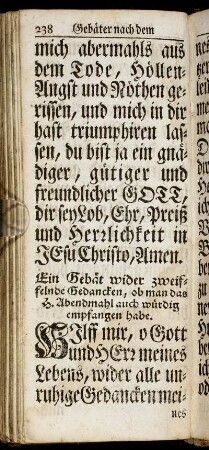 238 Gebäter nach dem
mich abermahls aus
dem Tode, Höllen-
Angst und Nöthen ge-
rissen, und mich in dir
hast triumphiren las-
sen, du bist ja ein gnä-
diger, gütiger und
freundlicher GOTT,
dir sey Lob, Ehr, Preiß
und Herrlichkeit in
JEsu Christo, Amen.
Ein Gebät wider zweif-
felnde Gedancken, ob man das
H. Abendmahl auch würdig
empfangen habe.
HIlff mir, o Gott
und HErr meines
Lebens, wider alle un-
ruhige Gedancken mei-
nes